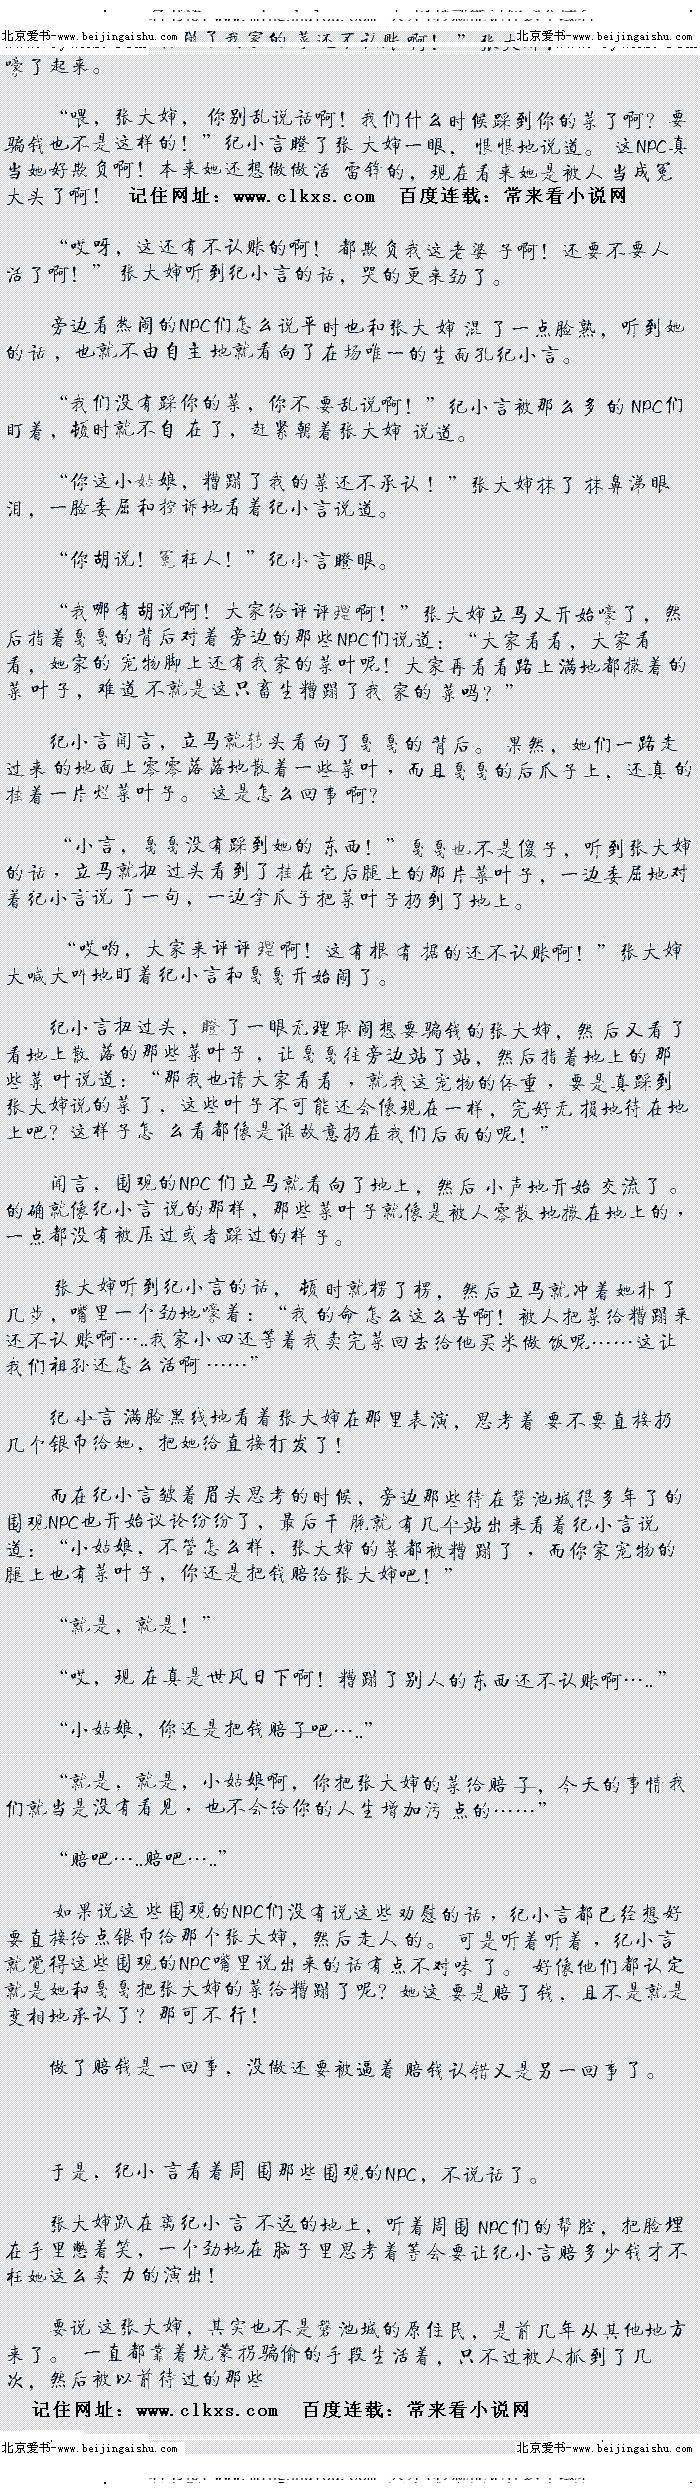 北京爱书-www.beijingaishu.com 北京爱书-www.beijingaishu.com
嚎了起来。
“喂，张大婶， 你别乱说话啊！我们什么时候踩到你的菜了啊？要
骗钱也不是这样的！”纪小言瞪了张 大婶一眼， 恨恨地说道。 这NPC真
当她好欺负啊！本来她还想做做活 雷锋的，现在看来她是被人 当成冤
大头了啊！ 记住网址：www.clkxs.com 百度连载：常来看小说网
“哎呀，这还有不认账的啊！ 都欺负我这老婆 子啊！还要不要人
活了啊！” 张大婶听到纪小言的话，哭的更来劲了。
旁边看热闹的NPC们怎么说平时也和张大 婶 混 了 一点脸熟，听到她
的话 ，也就不由自主 地就看向了在场唯一的生面孔纪小言。
“我们没有踩你的菜，你不 要乱说啊！”纪小言被那么多 的 NPC们
盯着，顿时就不自 在了，赶紧朝着张大婶 说道。
“你这小姑娘，糟蹋了我的菜还不承认！”张大婶抹了 抹鼻涕眼
泪，一脸委屈和控诉地看着纪小言说道。
“你胡说！冤枉人！”纪小言瞪眼。
“我哪有胡说啊！大家给评评理啊！”张大婶立马又开始嚎了，然
后指着戛戛的背后对着 旁边的那些NPC们说道：“大家看看，大家看
看，她家的 宠物脚上还有我家的菜叶呢！大家再看看路上满地都撒着的
菜叶子，难道 不就是这只畜生糟蹋了我 家的菜吗？”
纪小言闻言，立马就转头看向了戛戛的 背后。 果然，她们一路走
过来 的地面上零零落落地散着一些菜叶，而且戛戛的后爪子上，还真 的
挂着一片烂菜叶子。 这是怎么回事啊？
“小言，戛戛没有踩到她的 东西！” 戛戛也不是傻子，听到张大婶
的话，立马就扭 过头看到了挂在它后腿上的那片菜叶子，一边委屈地对
着纪小言说 了一句，一边拿爪子把菜叶子扔到了地上。
“哎哟，大家来评评理啊！这有根 有 据的还不认账啊！” 张大婶
大喊大叫地盯着纪小言和戛戛开始闹了。
纪小言扭过头，瞪了一眼无理取闹想要骗钱的张大婶，然 后又看了
看地上散 落的那些菜叶子 ，让戛戛往旁边站了站，然后指着地上的 那
些菜 叶说道：“那我也请大家看看 ，就我这宠物的体重 ，要是真踩到
张大婶说的菜了，这些叶子不可能还会像现在一样，完好无 损地待在地
上吧？这样子怎 么看都像是谁故意扔在我们后面的呢！”
闻言，围观的NPC们立马就看向了地上，然后 小声地开始 交流了 。
的确就像纪小言 说的那样，那些菜叶子就像是被人零散 地撒在地上的，
一点都没有被压过或者踩过的样子。
张大婶听到纪小言的话， 顿时就楞了楞， 然后立马就冲着她扑了
几步，嘴里一个劲地嚎着：“我 的命 怎么这么苦啊！被人把菜给糟蹋来
还不认 账啊…..我家小四还等着我卖完菜回去给他买米做 饭呢……这让
我们祖孙还怎么活啊 ……”
纪 小言 满脸黑线地看着张大婶在那里表演，思考着 要不要直接扔
几个银币给她，把她给直接打发了！
而在纪小言皱着眉头思考的时候，旁边那些待在磐池城很多年了的
围观NPC也开始议论纷纷了，最后干 脆就 有几个站出来看着纪小言说
道：“小姑娘，不管怎么样，张大婶的菜都被糟 蹋了 ，而你家宠物的
腿上也有菜叶子，你还是把钱赔给张大婶吧！”
“就是，就是！”
“哎，现 在真是世风日下啊！糟蹋了别人的东西还不认账啊…..”
“小姑娘，你还是把钱 赔了吧…..”
“就是，就是，小姑娘啊，你把张大婶的菜给赔 了，今天的事情我
们就当是没有看见，也不会给你的人生增加污 点的……”
“赔吧…..赔吧…..”
如果说这 些围观的NPC们没有说这些劝慰的话，纪小言都已经想好
要直接给点银币给那个张大婶，然后走人的。 可是听着听着，纪小言
就觉得这些围观的NPC嘴里说出来的话有点不对味 了。 好像他们都认定
就是她和戛戛把张大婶的菜给糟蹋了呢？她这 要是赔了钱，且不是就是
变相地承认了？那可不行！
做了赔钱是一回事，没做还要被逼着 赔钱认错又是另一回事了。
于是，纪小 言看着周 围那些围观的NPC，不说话了。
张大婶趴在离纪小 言 不远的地上，听着周围 NPC们的帮腔，把脸埋
在手里憋着笑，一个劲地在 脑子里思考着等会要让纪小言赔多少钱才不
枉她这么卖 力的演出！
要说 这张大婶，其实也不是磐池城的原住民，是前几年从其他地方
来了。 一直都靠着坑蒙拐骗偷的手段生活着，只不过被人抓到了几
次，然后被以前待过的那些
记住网址：www.clkxs.com 百度连载：常来看小说网
北京爱书-www.beijingaishu.com 北京爱书-www.beijingaishu.com